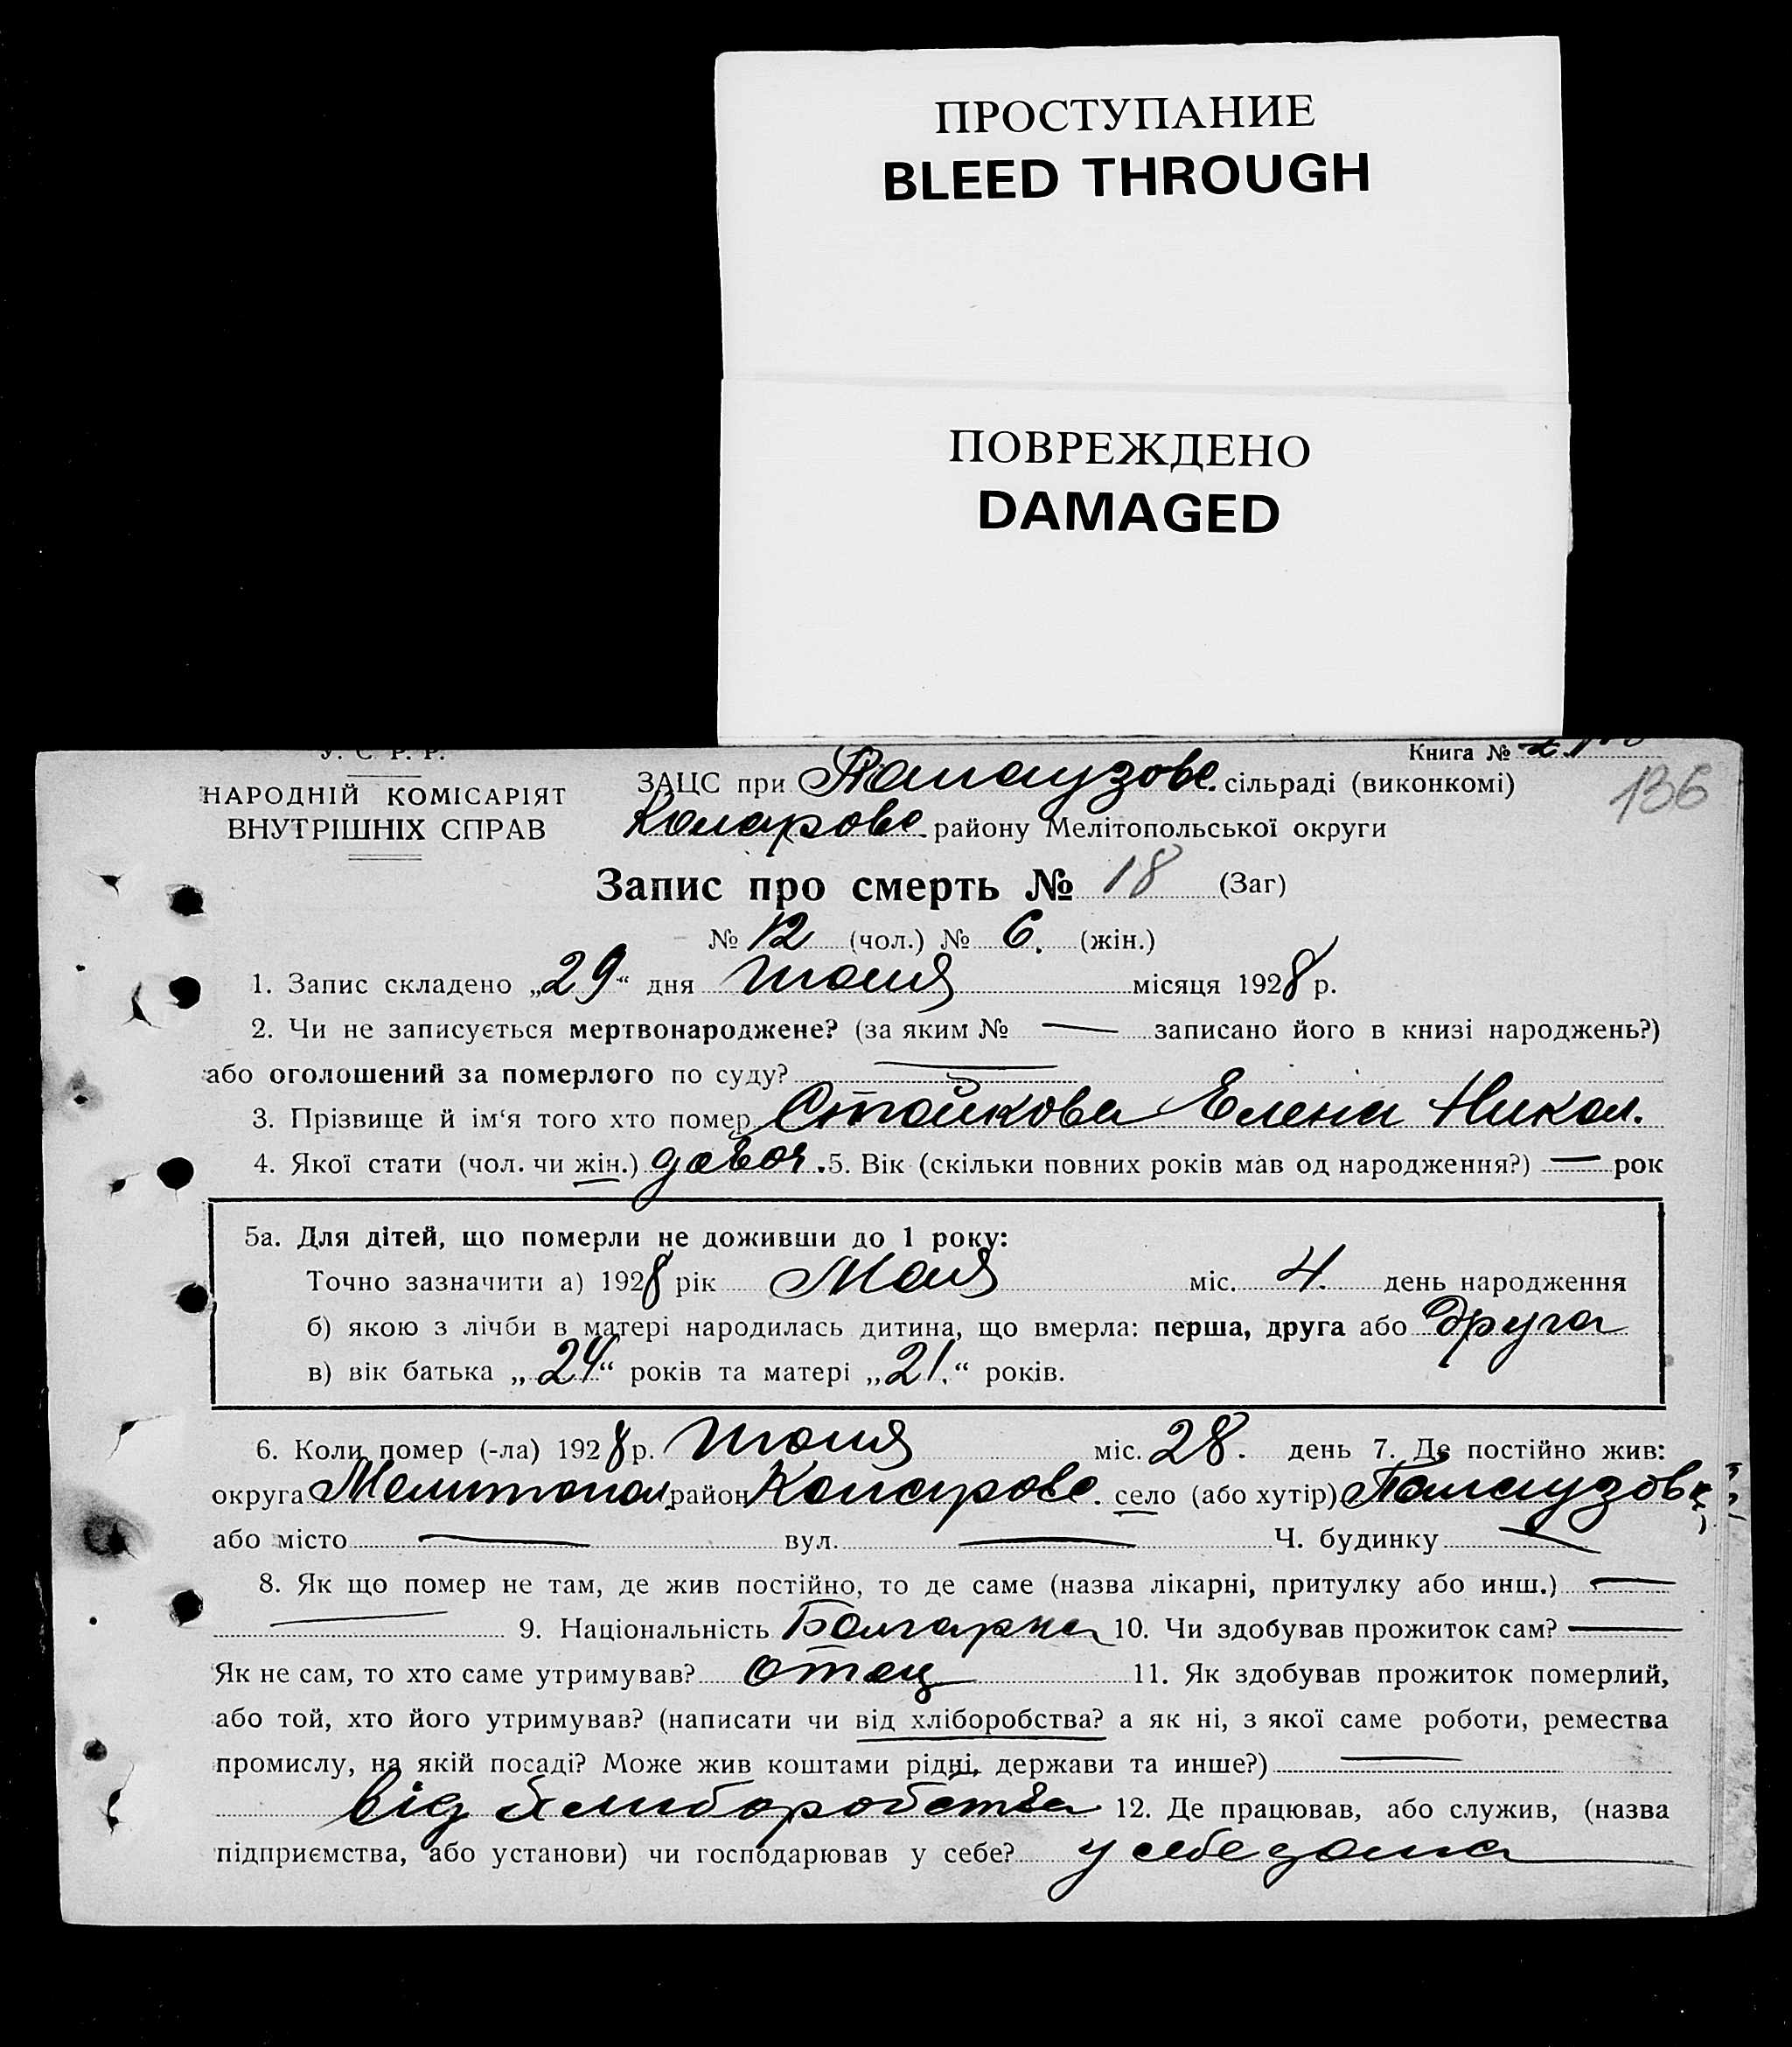 ПРОСТУПАНИЕ
BLEED THROUGH
ПОВРЕЖДЕНО
DAMAGED
У. С. Р. Р.
Книга №
НАРОДНІЙ КОМІСАРІЯТ
ВНУТРІШНІХ СПРАВ
ЗАЦС при Палаузовс. сільраді (виконкомі)
136
Коларовс. району Мелітопольської округи
Запис про смерть № 18 (Заг)
№ 12 (чол.) № 6. (жін.)
1. Запис складено „29“ дня июня місяця 1928 р.
2. Чи не записується мертвонароджене? (за яким № — записано його в книзі народжень?)
або оголошений за померлого по суду? —
3. Прізвище й ім‘я того хто помер Стойкова Елена Никол.
4. Якої стати (чол. чи жін.) 5. Вік (скільки повних років мав од народження?) — рок
5а. Для дітей, що померли не доживши до 1 року:
Точно зазначити а) 1928 рік Мая міс. 4. день народження
б) якою з лічби в матері народилась дитина, що вмерла: перша, друга або друга
в) вік батька „24“ років та матері „21.“ років.
6. Коли помер (-ла) 1928 р. июня міс. 28. день 7. Де постійно жив:
округа Мелитопол. район Коларовс. село (або хутір) Палаузовк
або місто — вул. — Ч. будинку —
8. Як що помер не там, де жив постійно, то де саме (назва лікарні, притулку або инш.) —
— 9. Національність Болгарка 10. Чи здобував прожиток сам? —
Як не сам, то хто саме утримував? отец 11. Як здобував прожиток померлий,
або той, хто його утримував? (написати чи від хліборобства? а як ні, з якої саме роботи, ремества
промислу, на якій посаді? Може жив коштами рідні, держави та инше?) —
від хлиборобства 12. Де працював, або служив, (назва
підприємства, або установи) чи господарював у себе? у себе дома